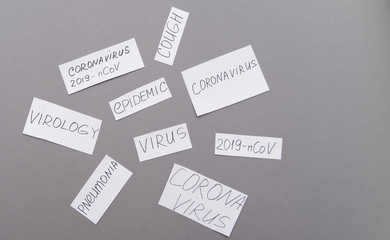 COUGH
CORONAVIRUS
2019-nCoV
CORONAVIRUS
EPIDEMIC
VIROLOGY
VIRUS
2019-nCoV
PNEUMONIA
CORONA
VIRUS